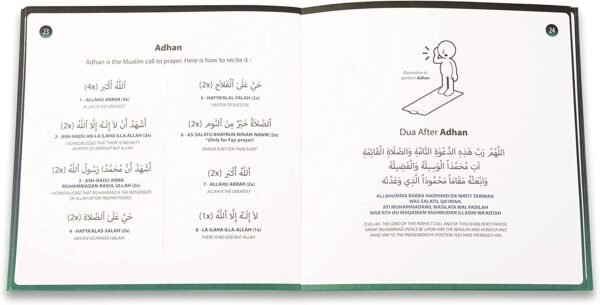 23
Adhan
Adhan is the Muslim call to prayer. Here is how to recite it :
اَللهُ أَكْبَر (4x)
1 - ALLAHU AKBAR (4x)
ALLAH IS THE GREATEST
أَشْهَدُ أَنْ لاَ إِلَـهَ إِلَّا اللهُ (2x)
2 - ASH-HADU AN-LA ILAHA ILLA ALLAH (2x)
I ACKNOWLEDGE THAT THERE IS NO DEITY
WORTHY OF WORSHIP BUT ALLAH
أَشْهَدُ أَنَّ مُحَمَّدًا رَسُولُ اللهِ (2x)
3 - ASH-HADU ANNA
MUHAMMADAN-RASUL ULLAH (2x)
I ACKNOWLEDGE THAT MUHAMMAD IS THE MESSENGER
OF ALLAH (AFTER PROPHETHOOD)
حَيَّ عَلَى الصَّلَاة (2x)
4 - HAYYA'ALAS-SALAH (2x)
HASTEN TO PRAYER (SALAH)
حَيَّ عَلَىٰ ٱلْفَلَاح (2x)
5 - HAYYA'ALAL-FALAH (2x)
HASTEN TO SUCCESS
الصَّلَاةُ خَيْرٌ مِنَ النَّوم (2x)
6 - AS SALATU KHAYRUN MINAN NAWM (2x)
*(Only for Fajr prayer)
PRAYER IS BETTER THAN SLEEP
اَللهُ أَكْبَر (2x)
7 - ALLAHU AKBAR (2x)
ALLAH IS THE GREATEST
لاَ إِلَـهَ إِلَّا اللهُ (1x)
8 - LA ILAHA ILLA-ALLAH (1x)
THERE IS NO GOD BUT ALLAH
24
Illustration to
perform Adhan
Dua After Adhan
اَللّٰهُمَّ رَبَّ هَذِهِ الدَّعْوَةِ التَّامَّةِ وَالصَّلَاةِ الْقَائِمَةِ
آتِ مُحَمَّداً الْوَسِيلَةَ وَالْفَضِيلَةَ
وَابْعَثْهُ مَقَاماً مَحْمُوداً الَّذِي وَعَدْتَه
ALLAHUMMA RABBA HADHIHID DA'WATIT TAMMAH
WAS SALATIL QA'IMAH,
ATI MUHAMMADANIL WASILATA WAL FADILAH
WAB'ATH HU MAQAMAM MAHMUDAN ILLADHI WA'ADTAH
O ALLAH, THE LORD OF THIS PERFECT CALL AND OF THIS ESTABLISHED PRAYER,
GRANT MUHAMMAD (PEACE BE UPON HIM) THE WASILAH AND HONOUR AND
RAISE HIM TO THE PRAISEWORTHY POSITION YOU HAVE PROMISED HIM.